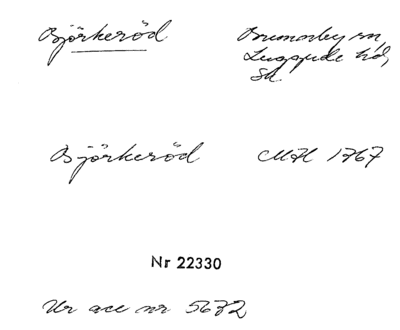 Björkeröd
Brunnby sn,
Luggude hd,
Sk.
Björkeröd MH 1767
Nr 22330
Ur acc nr 5672